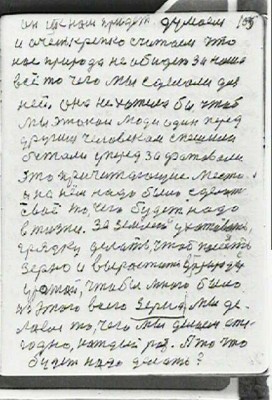 он к нам придёт думаем 105
и очень крепко считаем что
нас природа не обидет за наше
всё то чего мы сделали для
ней. она не хотела бы чтоб
мы такои люди один перед
другим человеком спешили
бежали уперед захватовали
это причетающие место.
и на нём надо было сделать
своё то, чего будет надо
в жизни. За землей ухаживать
грядку делать, чтоб посеять
зерно и вырастить в природе
урожай, чтобы много было
из этого всего зерна, мы де-
лаем то, чего мы делаем еже-
годно, каждый раз. А то что
будет надо делать?